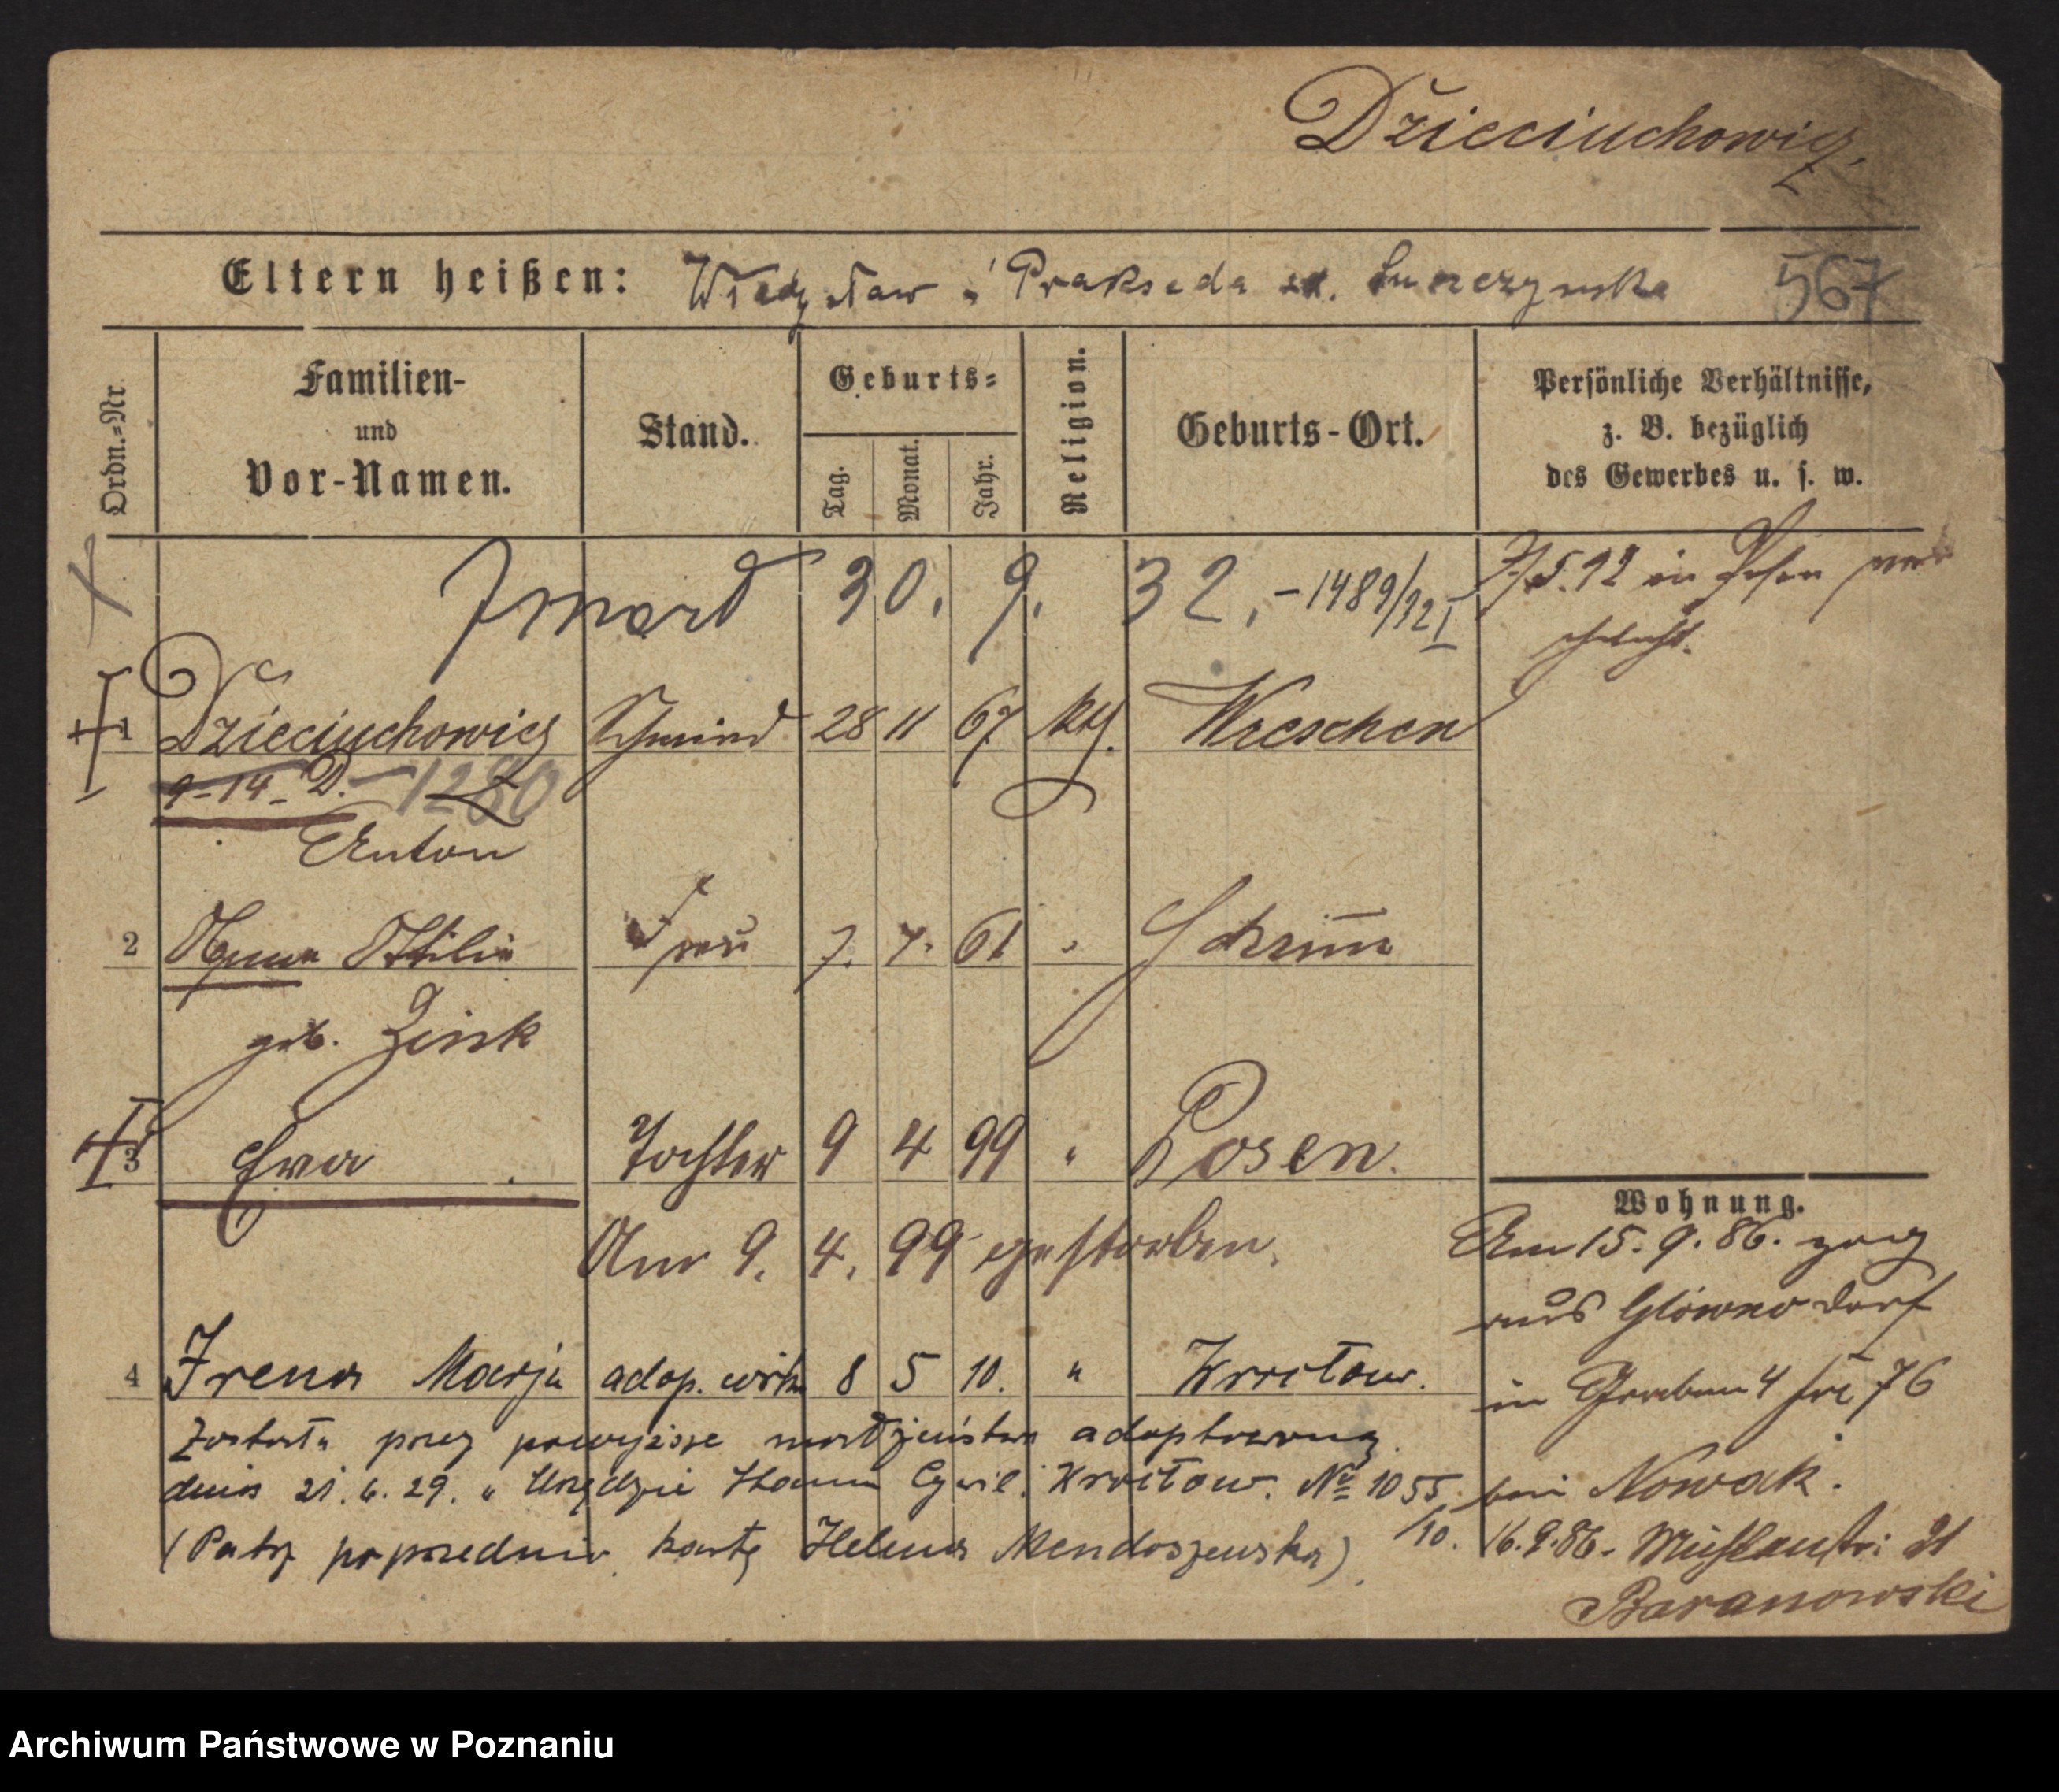 Dzieciuchowicz
Eltern heißen: Władysław i Prakseda
567
Ordn.-Nr.
Familien-
und
Vor-Namen.
Stand.
Geburts-
Tag.
Monat.
Jahr.
Religion.
Geburts-Ort.
Persönliche Verhältnisse,
z. B. bezüglich
des Gewerbes u. s. w.
Zmarł 30. 9. 32. - 1489/92 I
in Posen ver
ehelicht.
1 Dzieciuchowicz Schmied 28 11 67 kth. Wreschen
9-14-D. - 1280
Anton
2 Agnes Ottilie Frau 7. 7. 61 " Schrimm
geb. Zink
3 Ewa Tochter 9 4 99 " Posen.
Am 9. 4. 99 gestorben.
Wohnung.
Am 15. 9. 86. zog
aus Glowno dorf
in Graben 4 76
bei Nowak.
4 Irena Marja adop. 8 5 10. "
Została przez powyższe małżeństwo adoptowaną
dnia 21.6.29. w Urzędzie Stanu Cywil. No 1055/10.
(Patrz poprzednio kartę Helena Mendoszewska)
16.9.86. Mühlenstr: 21
Baranowski
Archiwum Państwowe w Poznaniu